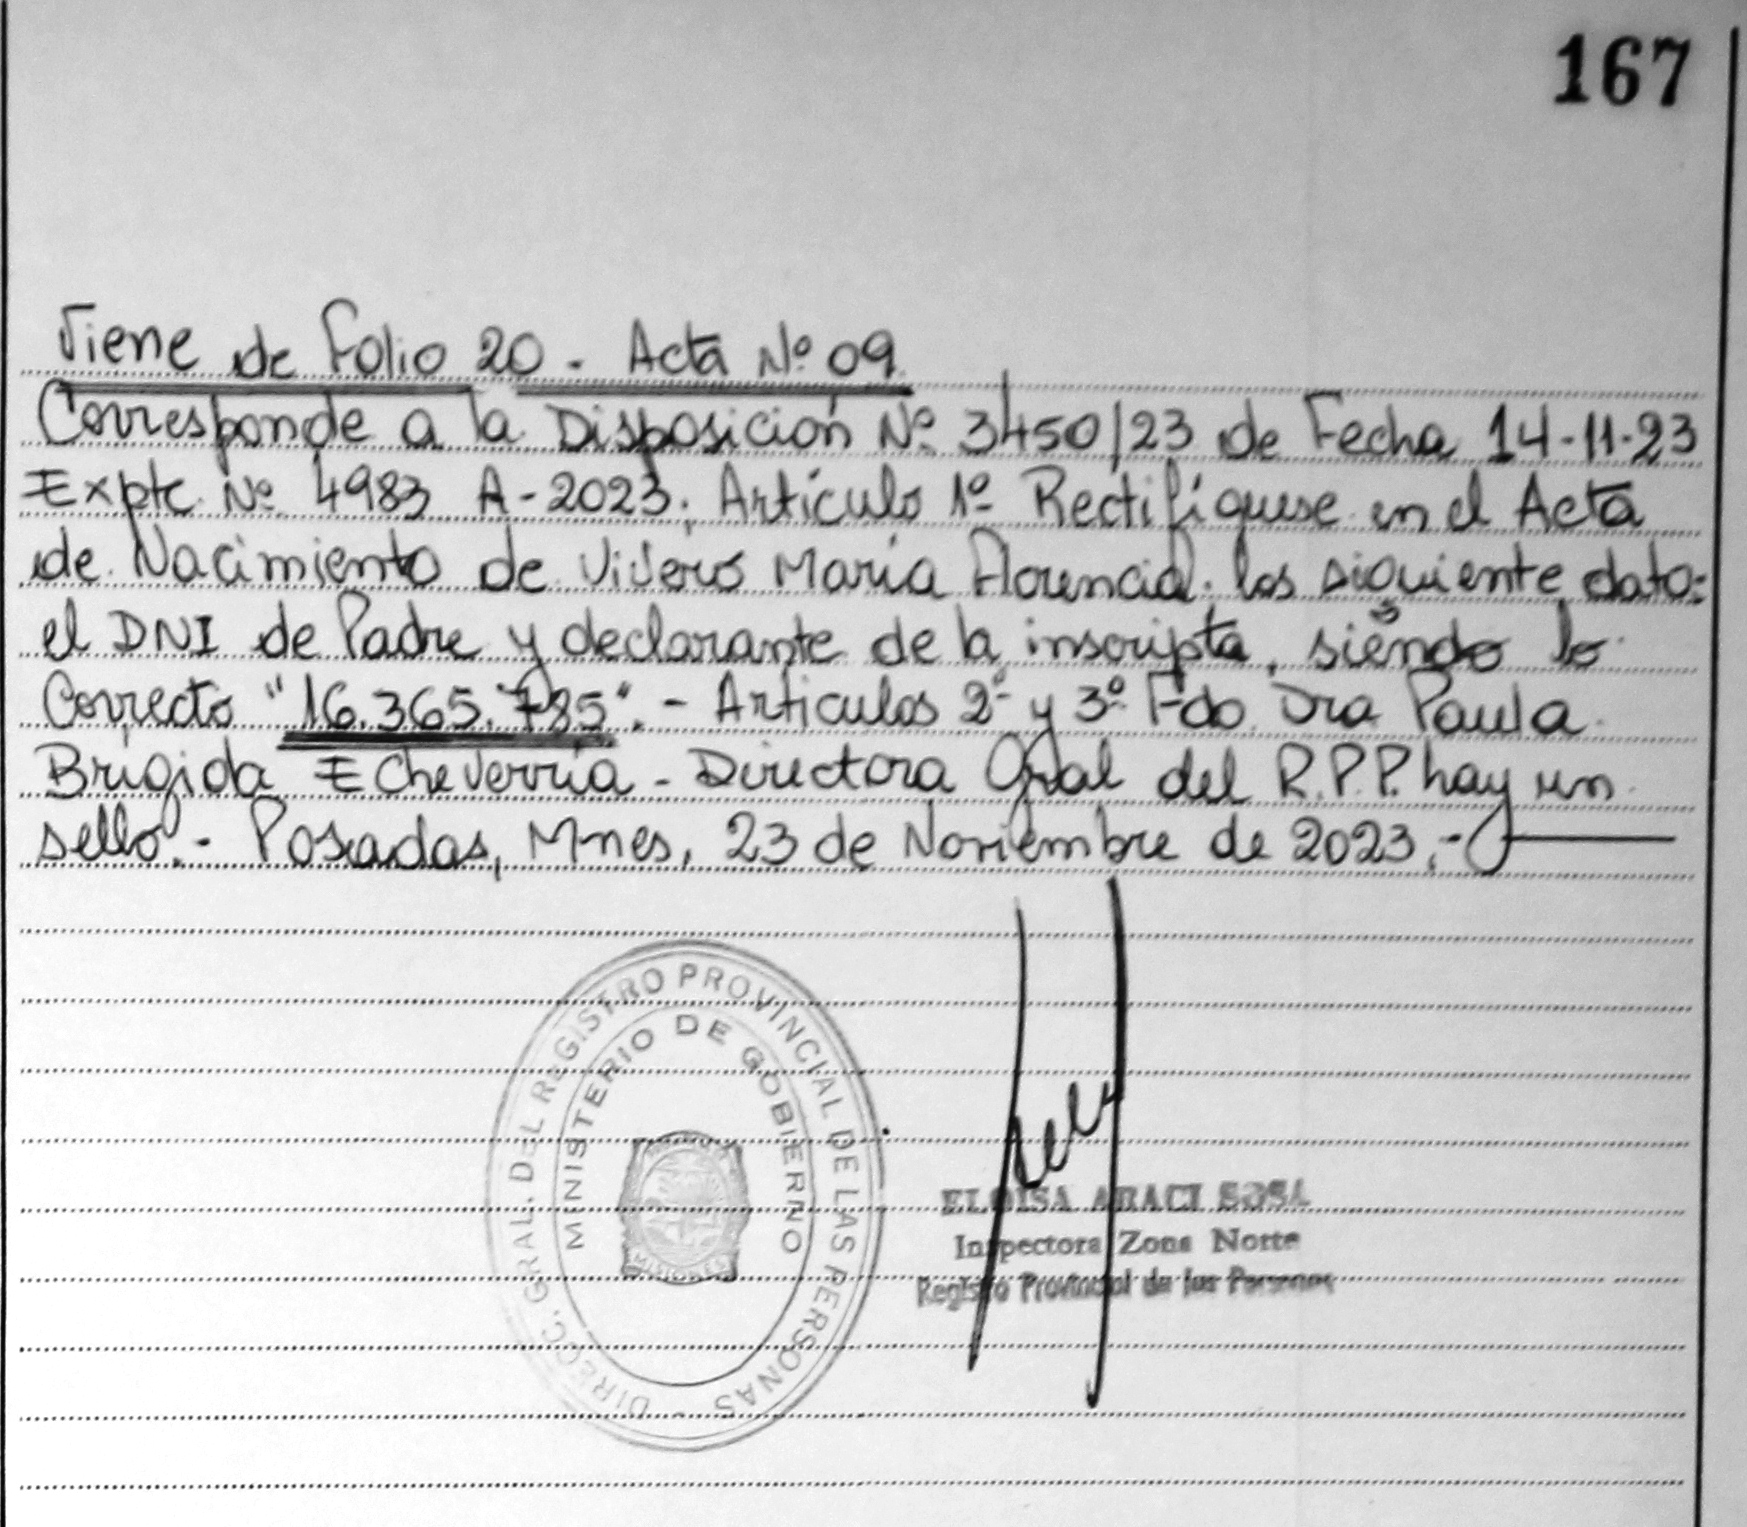 167
Viene de Folio 20 - Acta Nº 09.
Corresponde a la Disposición Nº 3450/23 de Fecha 14-11-23
Expte. Nº 4983 A-2023. Artículo 1º Rectifíquese en el Acta
de Nacimiento de Viveros María Florencia. los siguiente dato:
el DNI de Padre y declarante de la inscripta, siendo lo
Correcto "16.365.785". - Articulos 2º y 3º. Fdo. Dra Paula
Brigida Echeverria - Directora Gral del R.P.P. hay un
sello. - Posadas, Mnes, 23 de Noviembre de 2023.-
DIRECC. GRAL. DEL REGISTRO PROVINCIAL DE LAS PERSONAS -
MINISTERIO DE GOBIERNO
MISIONES
ELOISA ARACI SOSA
Inspectora Zona Norte
Registro Provincial de las Personas